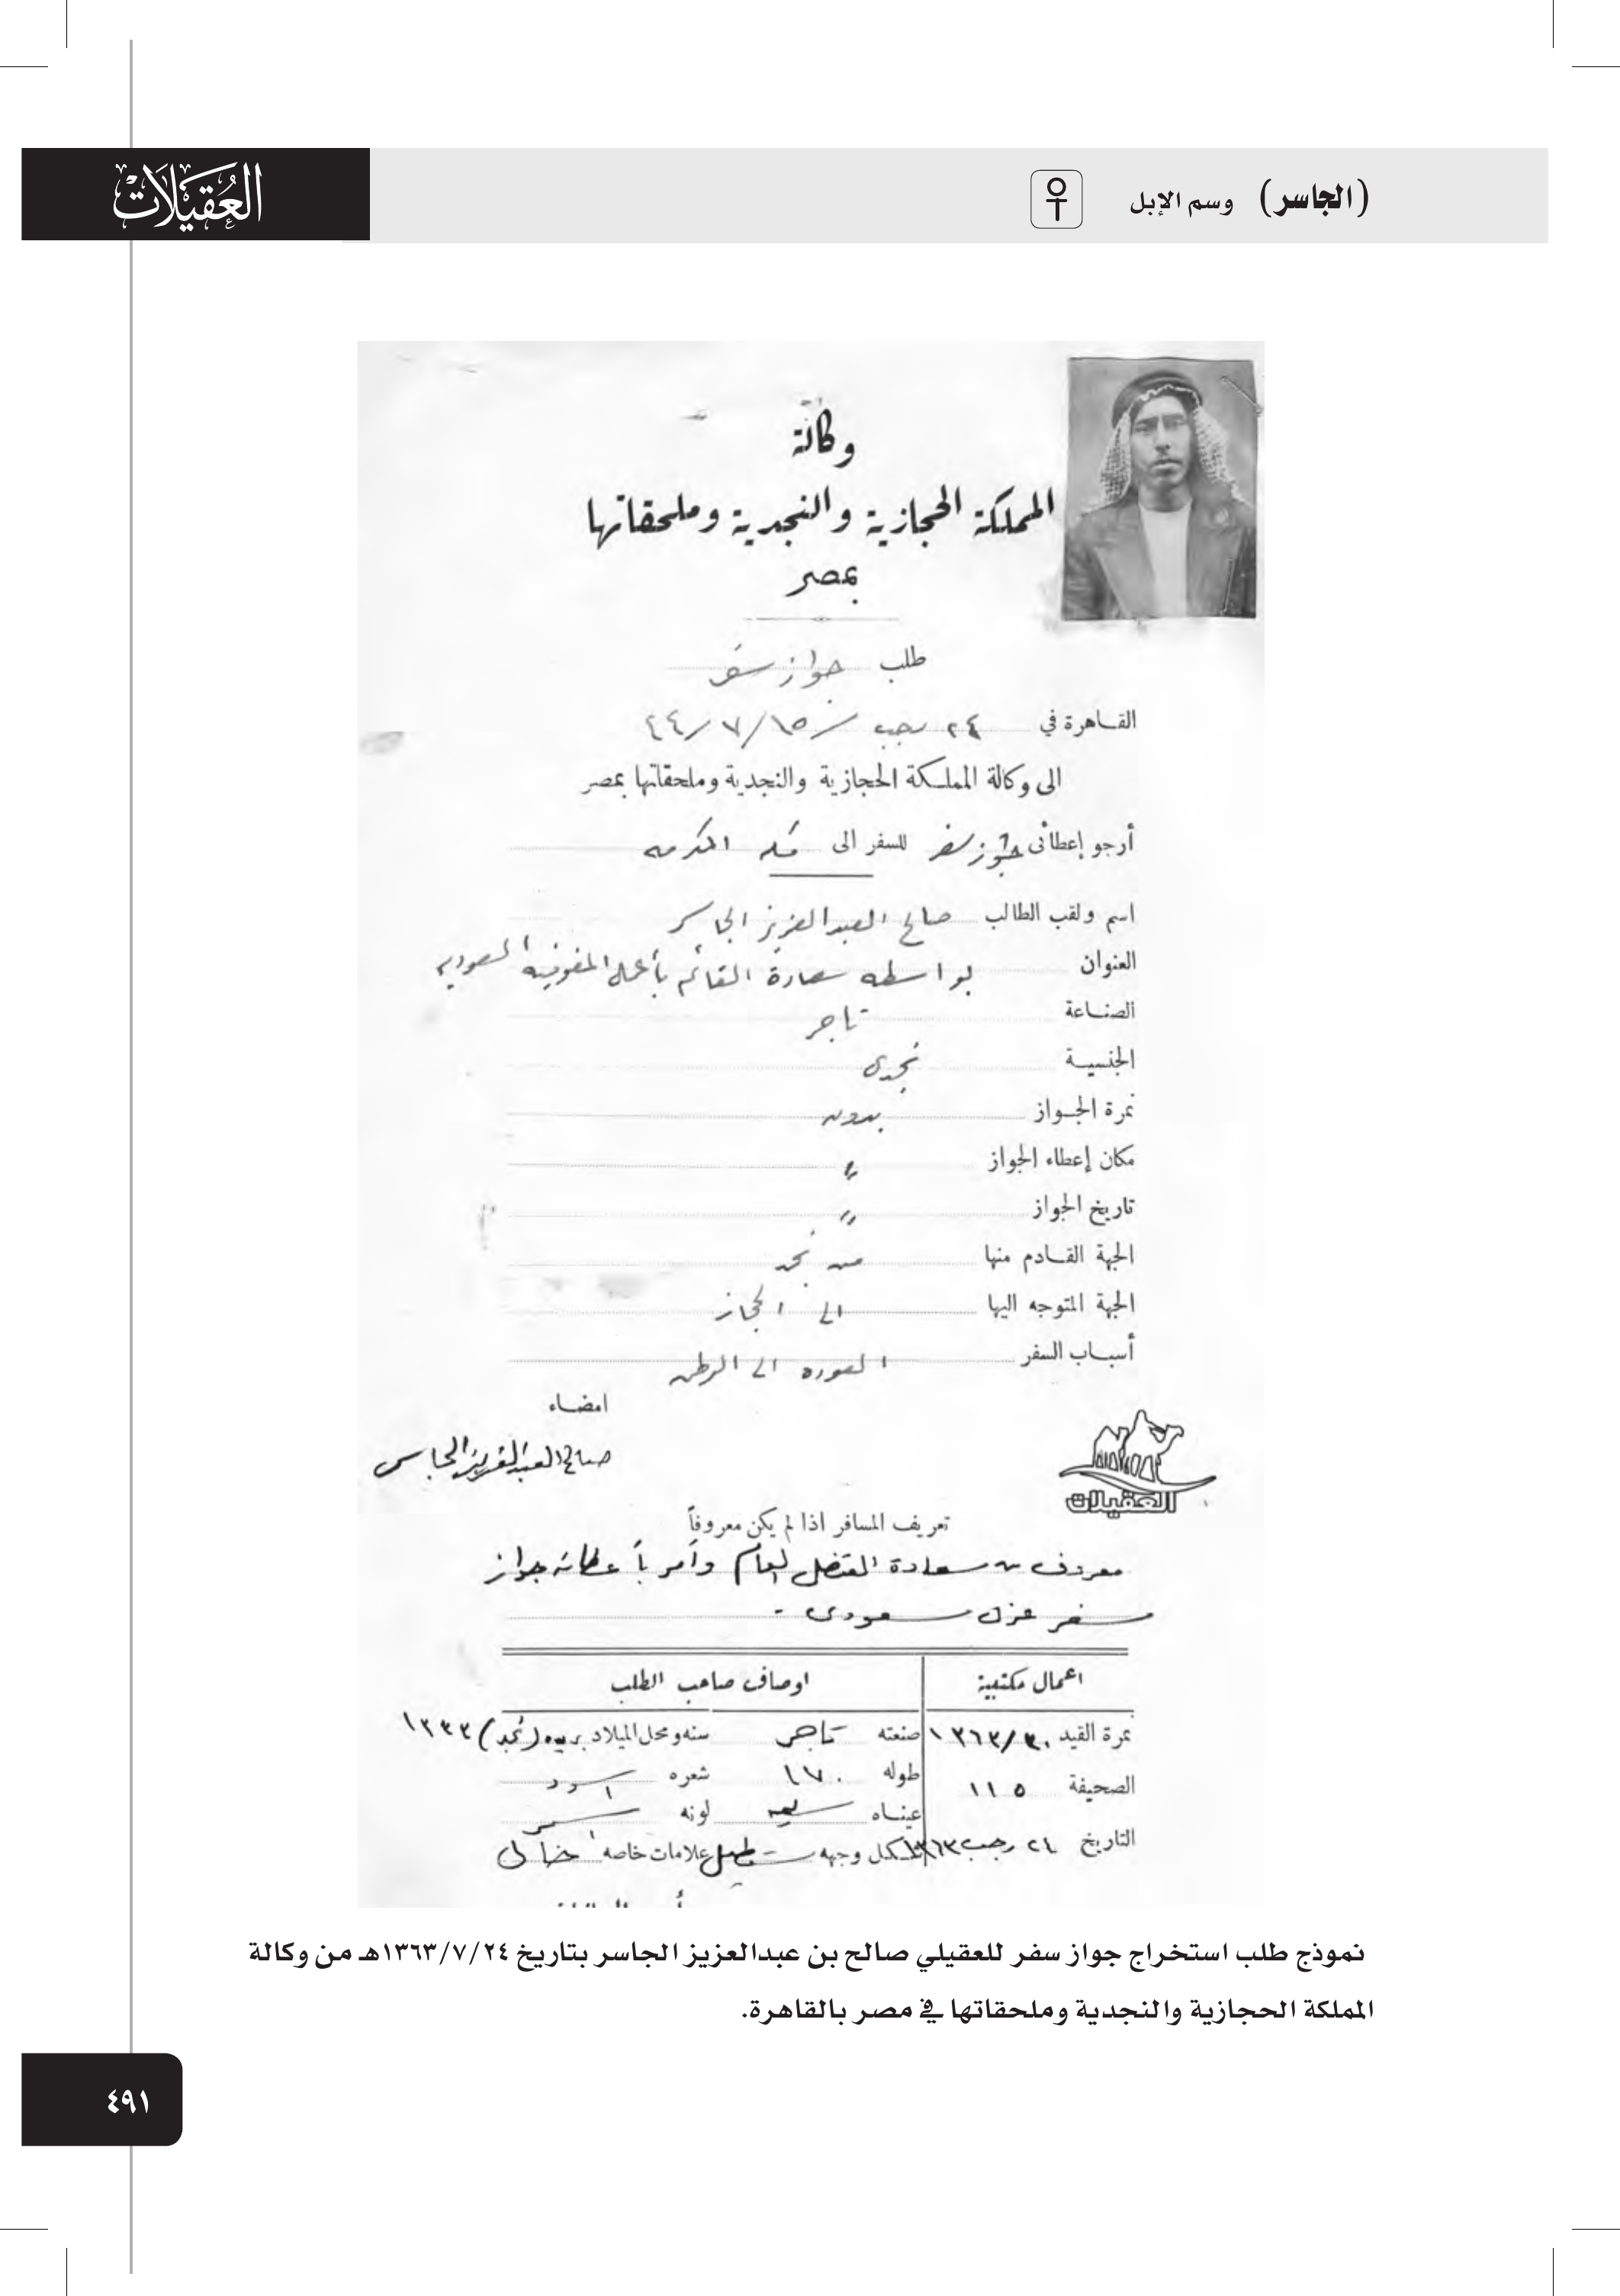 العقيلات
(الجاسر) وسم الإبل
وكالة
المملكة الحجازية والنجدية وملحقاتها
بمصر
طلب جواز سفر
القاهرة في ٢٤ رجب / ١٥ / ٧ / ٤٤
الى وكالة المملكة الحجازية والنجدية وملحقاتها بمصر
أرجو إعطائى جواز سفر للسفر الى مكه المكرمه
اسم ولقب الطالب صالح العبد العزيز الجاسر
العنوان بواسطه سعادة القائم بأعمال المفوضيه السعوديه
الصناعة تاجر
الجنسية نجدى
نمرة الجواز بدون
مكان إعطاء الجواز "
تاريخ الجواز "
الجهة القادم منها من نجد
الجهة المتوجه اليها الى الحجاز
أسباب السفر العوده الى الوطن
امضاء
صالح العبد العزيز الجاسر
العقيلات
تعريف المسافر اذا لم يكن معروفاً
معروف من سعادة القنصل العام وأمر بأعطائه جواز
سفر سعودى -
اعمال مكتبية اوصاف صاحب الطلب
نمرة القيد ١٣٦٣/٣٠ صنعته تاجر سنه ومحل الميلاد بريده (نجد) ١٣٣٣
الصحيفة ١١٥ طوله ١٧٠ شعره اسود
عيناه لونه اسمر
التاريخ ٢٤ رجب ١٣٦٣ شكل وجهه مستطيل علامات خاصه خالى
نموذج طلب استخراج جواز سفر للعقيلي صالح بن عبدالعزيز الجاسر بتاريخ ١٣٦٣/٧/٢٤هـ من وكالة
المملكة الحجازية والنجدية وملحقاتها في مصر بالقاهرة.
٤٩١